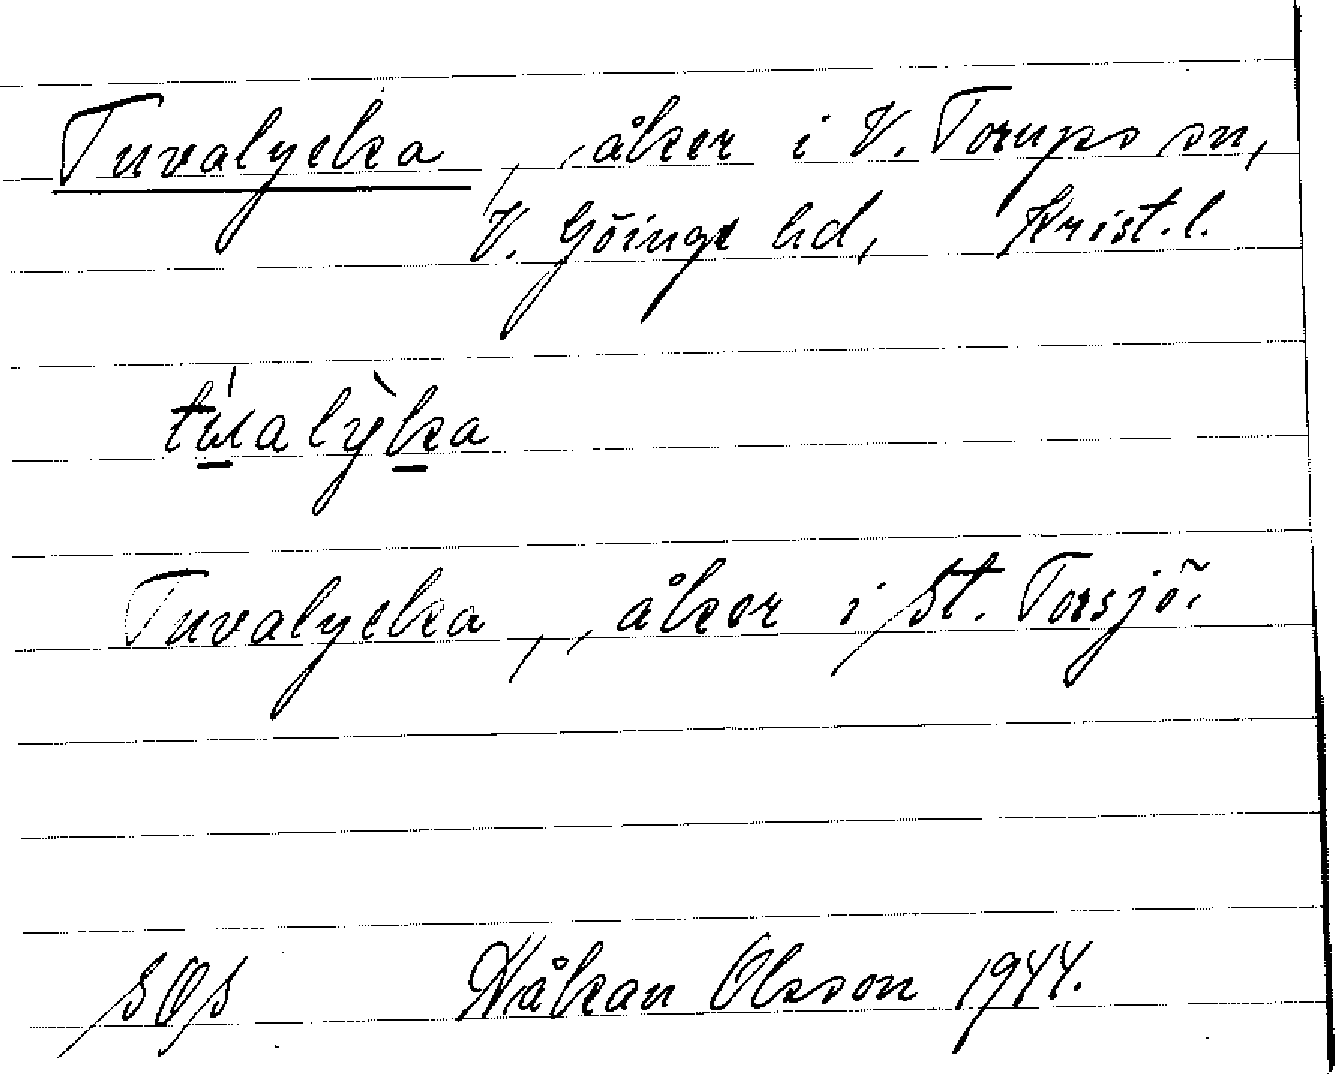 Tuvalycka, åker i V. Torups sn,
V. Göinge hd, Krist. l.
Tuvalycka, åker i St. Torsjö.
SOS Håkan Olsson 1944.